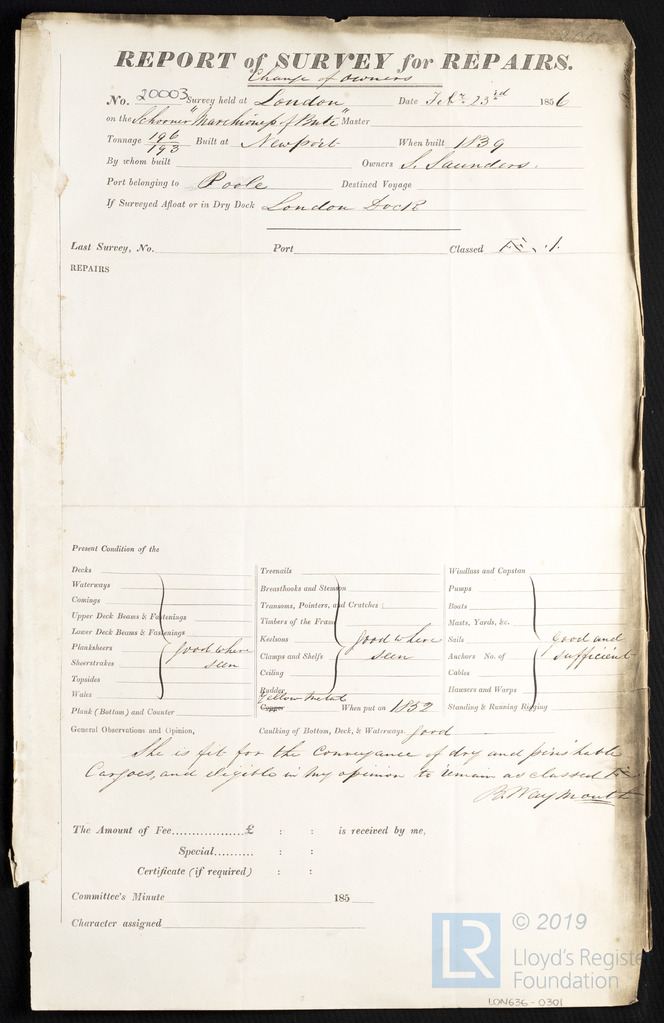 REPORT of SURVEY for REPAIRS.
Change of Owners
No. 20003 Survey held at London Date Feby. 23rd 1856
on the Schooner "Marchioness of Bute" Master
Tonnage 196/193 Built at Newport When built 1839
By whom built Owners S. Saunders.
Port belonging to Poole Destined Voyage
If Surveyed Afloat or in Dry Dock London Dock
Last Survey, No. Port Classed Æ 1
REPAIRS
Present Condition of the
Decks
Waterways
Comings
Upper Deck Beams & Fastenings
Lower Deck Beams & Fastenings
Planksheers
Sheerstrakes
Topsides
Wales
good where
seen
Plank (Bottom) and Counter
Treenails
Breasthooks and Stemson
Transoms, Pointers, and Crutches
Timbers of the Frame
Keelsons
Clamps and Shelfs
Ceiling
Rudder
good where
seen
Yellow Metal
Copper When put on 1852
Windlass and Capstan
Pumps
Boats
Masts, Yards, &c.
Sails
Anchors No. of
Cables
Hawsers and Warps
Standing & Running Rigging
good and
sufficient
General Observations and Opinion, Caulking of Bottom, Deck, & Waterways. good
She is fit for the conveyance of dry and perishable
Cargoes, and eligible in my opinion to remain as classed Æ
B. Waymouth
The Amount of Fee................£ : : is received by me,
Special.......... : :
Certificate (if required) : :
Committee's Minute 185
Character assigned
LR
© 2019
Lloyd's Registe
Foundation
LON636-0301